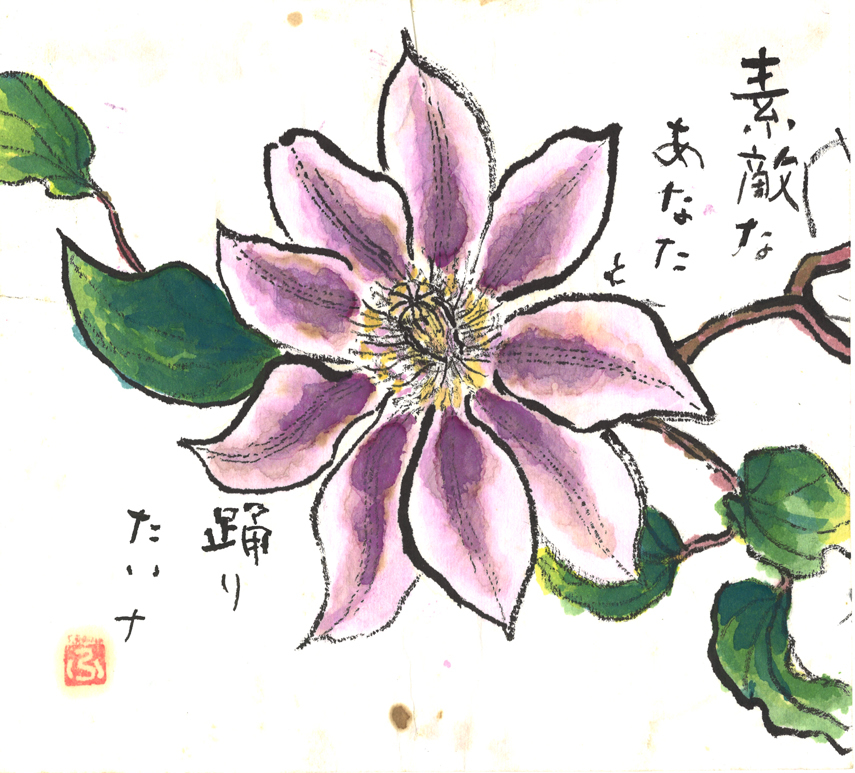 素敵な
あなた
と
踊り
たいナ
ろ